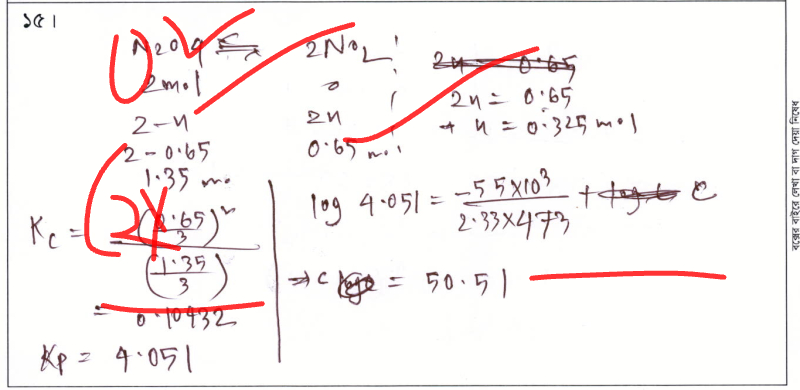 ১৫।
N2O4 ⇌ 2NO2
2mol 0
2-x 2x
2-0.65 0.65 mol
1.35 mol
2x = 0.65
2x = 0.65
→ x = 0.325 mol
Kc = (0.65/3)² / (1.35/3)
= 0.10432
Kp = 4.051
log 4.051 = -55×10³ / 2.33×473 + C
⇒ C = 50.51
বক্সের বাইরে লেখা বা দাগ দেয়া নিষেধ